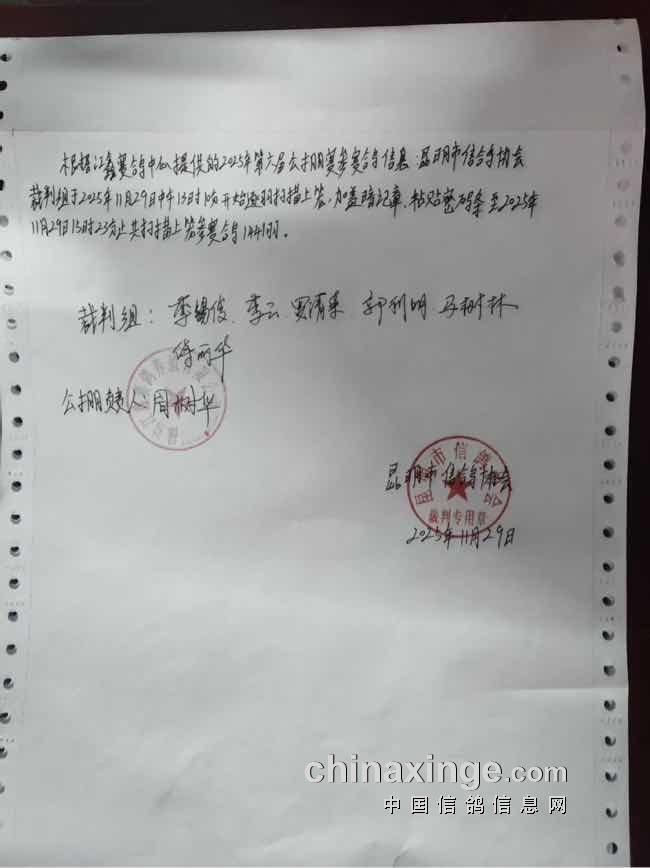 根据江鑫赛鸽中心提供的2025年第六届公棚赛参赛鸽信息,昆明市信鸽协会
裁判组于2025年11月29日中午13时10分开始逐羽扫描上笼,加盖暗记章,粘贴密码条至2025年
11月29日15时23分止共扫描上笼参赛鸽1441羽。
裁判组:李锡俊、李云 罗清来 郭利明 马树林
傅丽华
公棚负责人:周树华
昆明市信鸽协会
昆明市信鸽协会
裁判专用章
2025年11月29日
chinaxinge.com
中国信鸽信息网